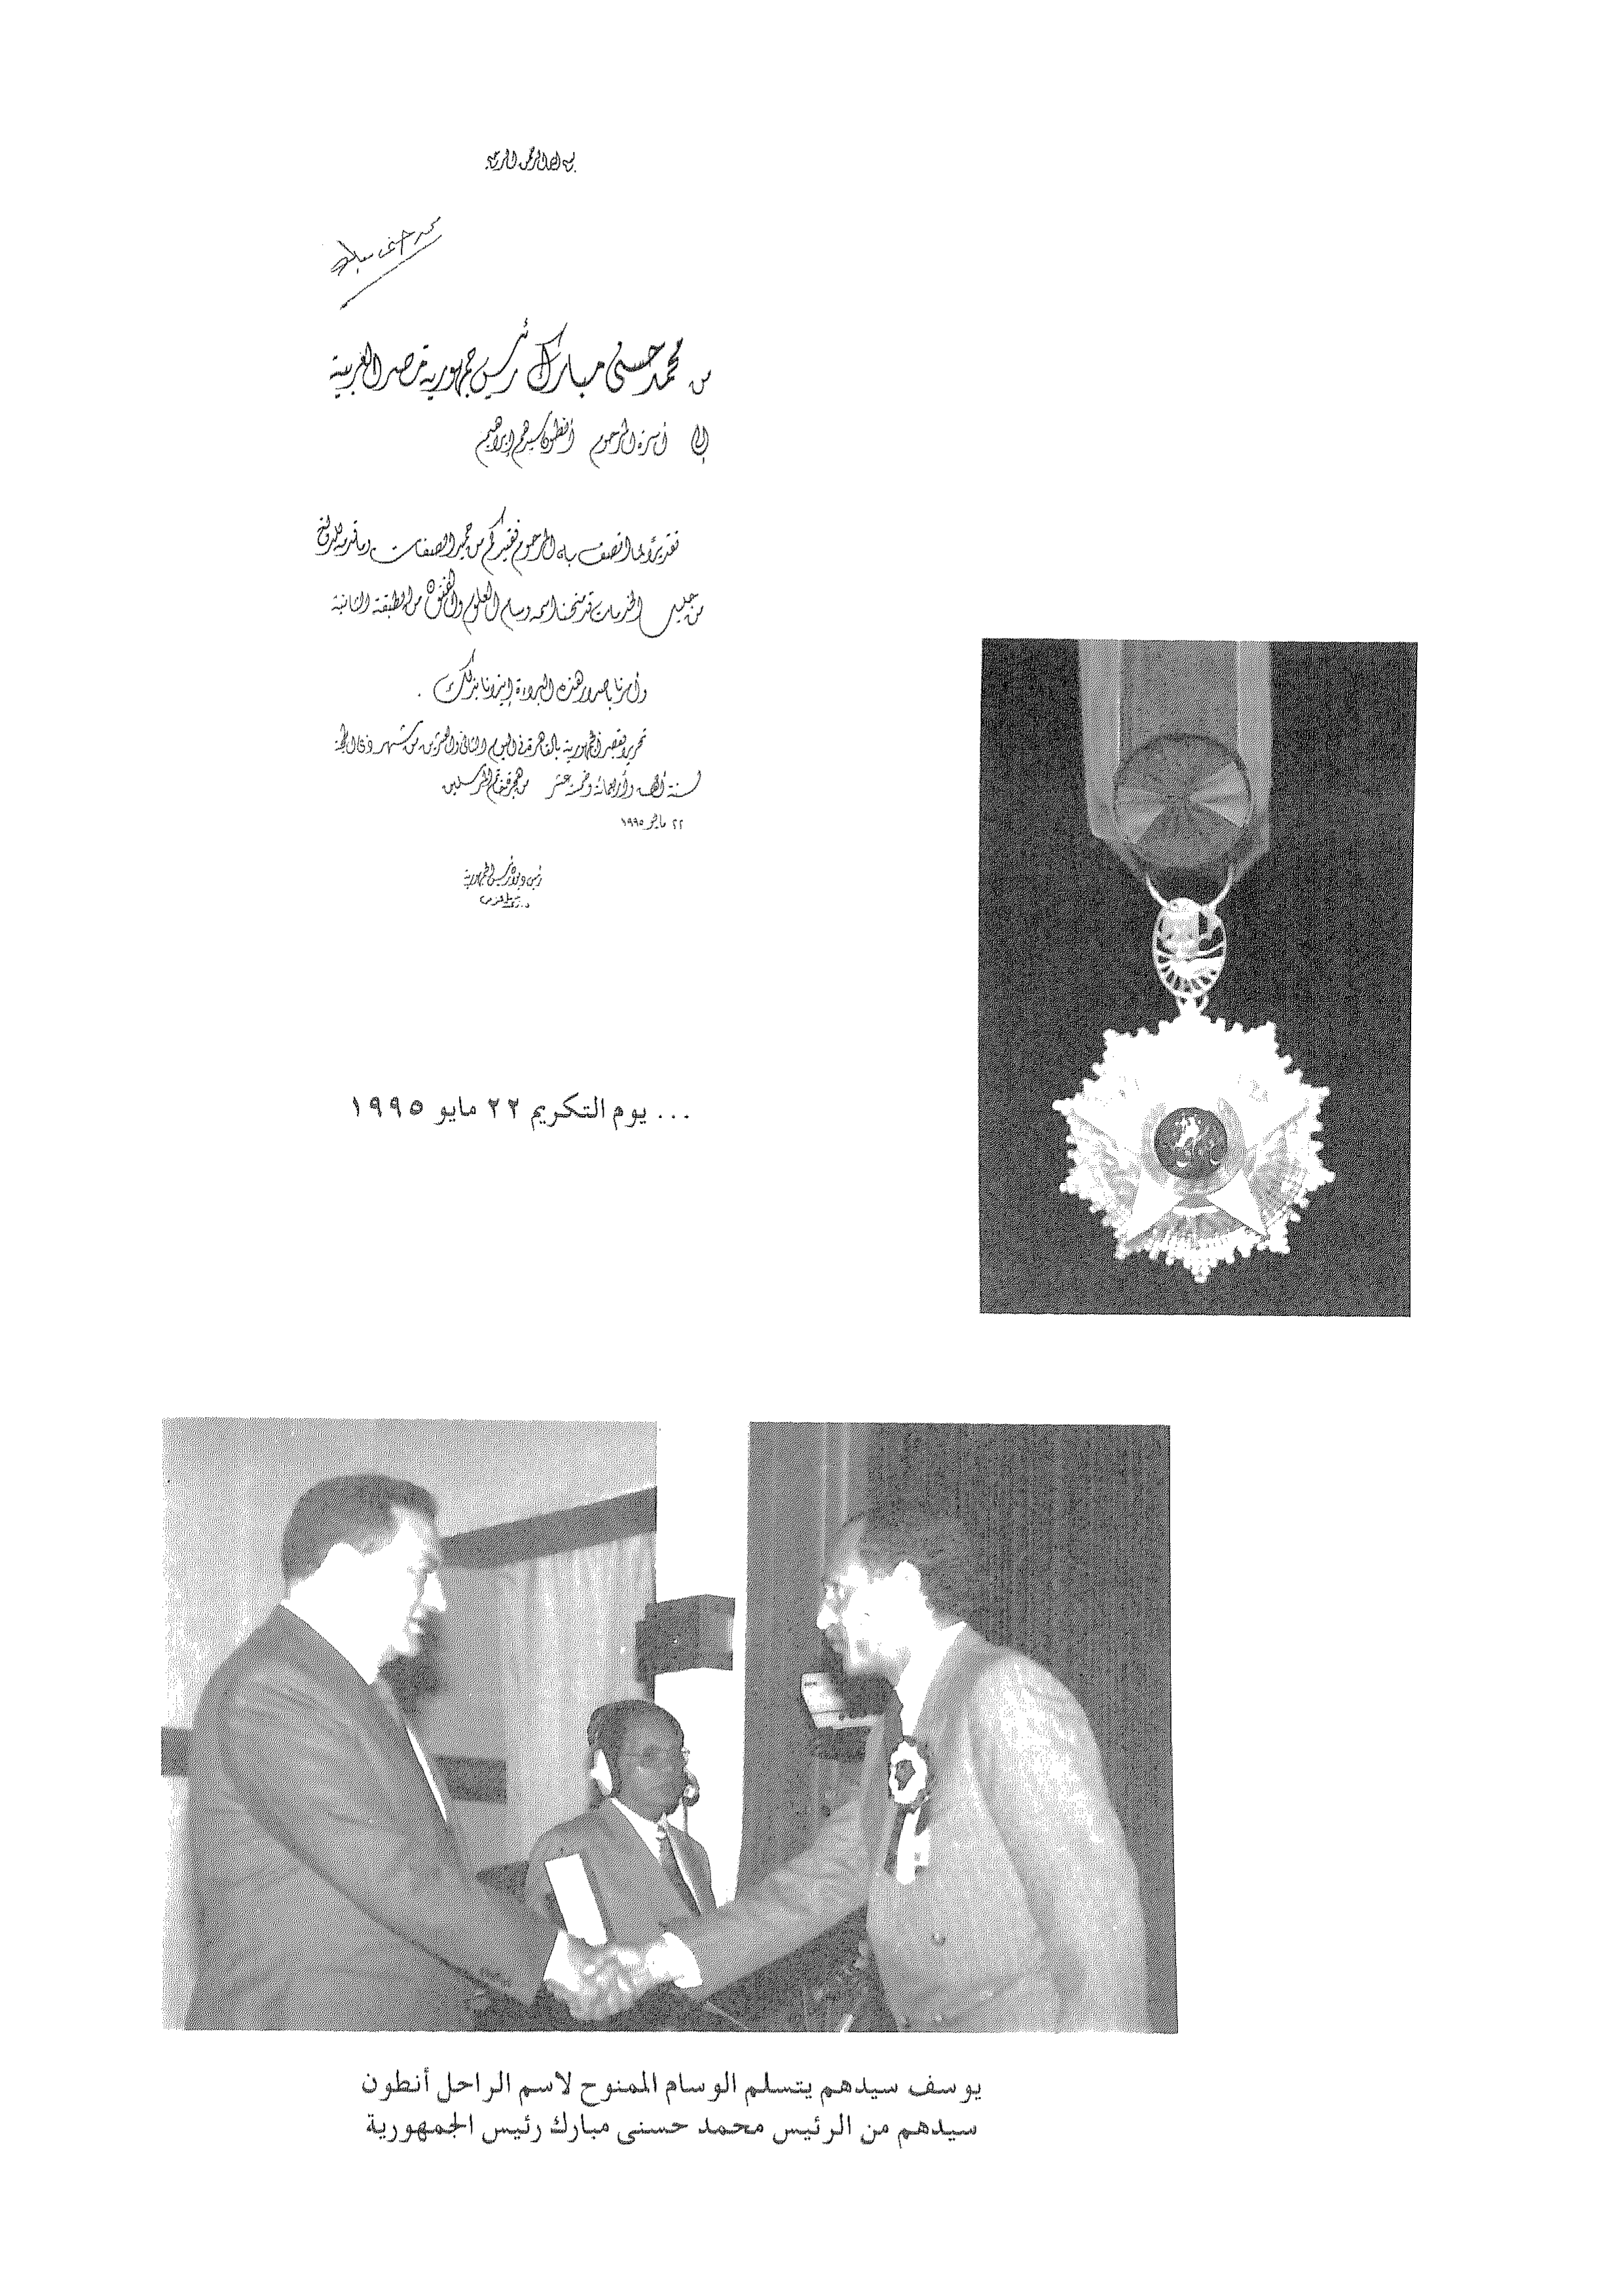 بسم الله الرحمن الرحيم
محمد حسنى مبارك
من محمد حسنى مبارك رئيس جمهورية مصر العربية
إلى أسرة المرحوم أنطون سيدهم إبراهيم
تقديرًا لما اتصف به المرحوم فقيدكم من حميد الصفات وما قدمه للدولة
من جليل الخدمات قد منحنا اسمه وسام العلوم والفنون من الطبقة الثانية
وأمرنا بإصدار هذه البراءة إيذانا بذلك .
تحريرا بقصر الجمهورية بالقاهرة فى اليوم الثانى والعشرين من شهر ذى الحجة
لسنة ألف وأربعمائة وخمسة عشر من هجرة خاتم المرسلين
٢٢ مايو ١٩٩٥
رئيس ديوان رئيس الجمهورية
... يوم التكريم ٢٢ مايو ١٩٩٥
يوسف سيدهم يتسلم الوسام الممنوح لاسم الراحل أنطون
سيدهم من الرئيس محمد حسنى مبارك رئيس الجمهورية